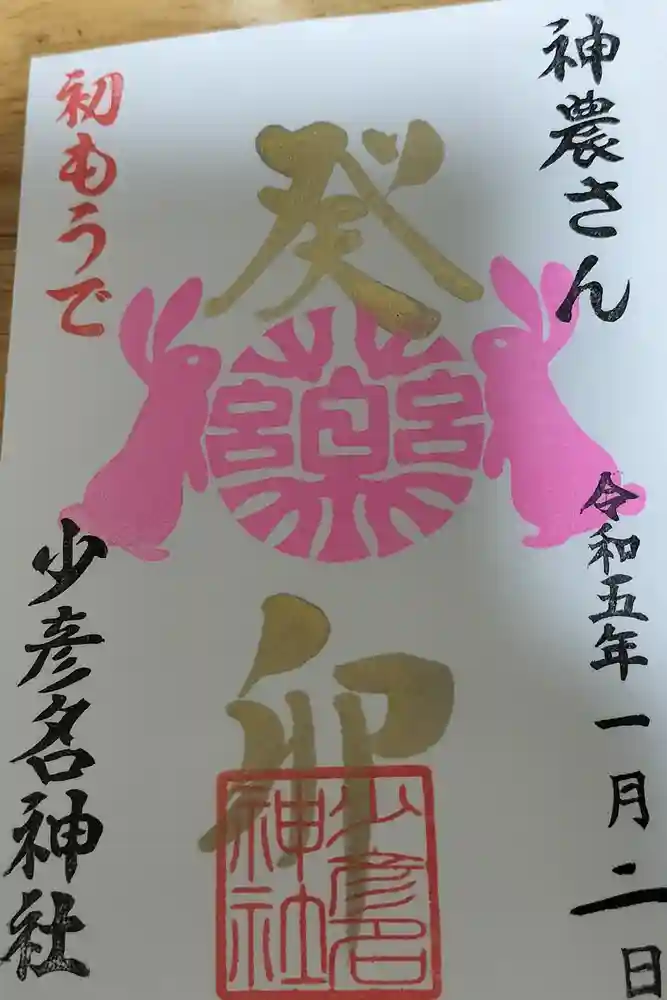 神農さん
令和五年一月二日
癸
薬宮
卯
少彦名
神社
初もうで
少彦名神社